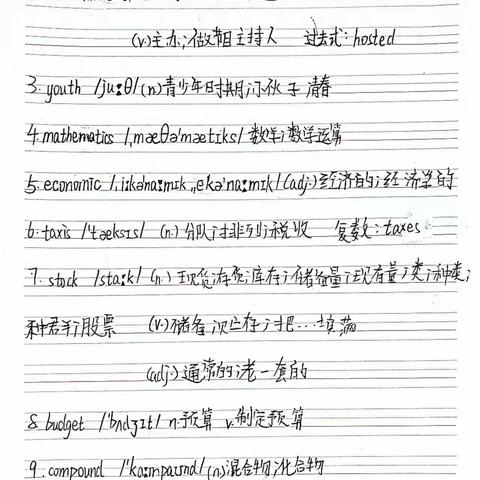 (v)主办;做节目主持人 过去式:hosted
3. youth /juːθ/ (n)青少年时期;小伙子 青春
4. mathematics /ˌmæθəˈmætɪks/ 数学;数学运算
5. economic /ˌiːkəˈnɑːmɪk ˌekəˈnɑːmɪk/ (adj.)经济的;经济学的
6. taxis /ˈtæksɪs/ (n.) 分队;排列;税收 复数:taxes
7. stock /stɑːk/ (n.) 现货;存货;库存;储备量;现有量;类;种类;
股票 (v.)储备;贮存;把…填满
(adj.)通常的;老一套的
8. budget /ˈbʌdʒɪt/ n.预算 v.制定预算
9. compound /ˈkɑːmpaʊnd/ (n)混合物;化合物